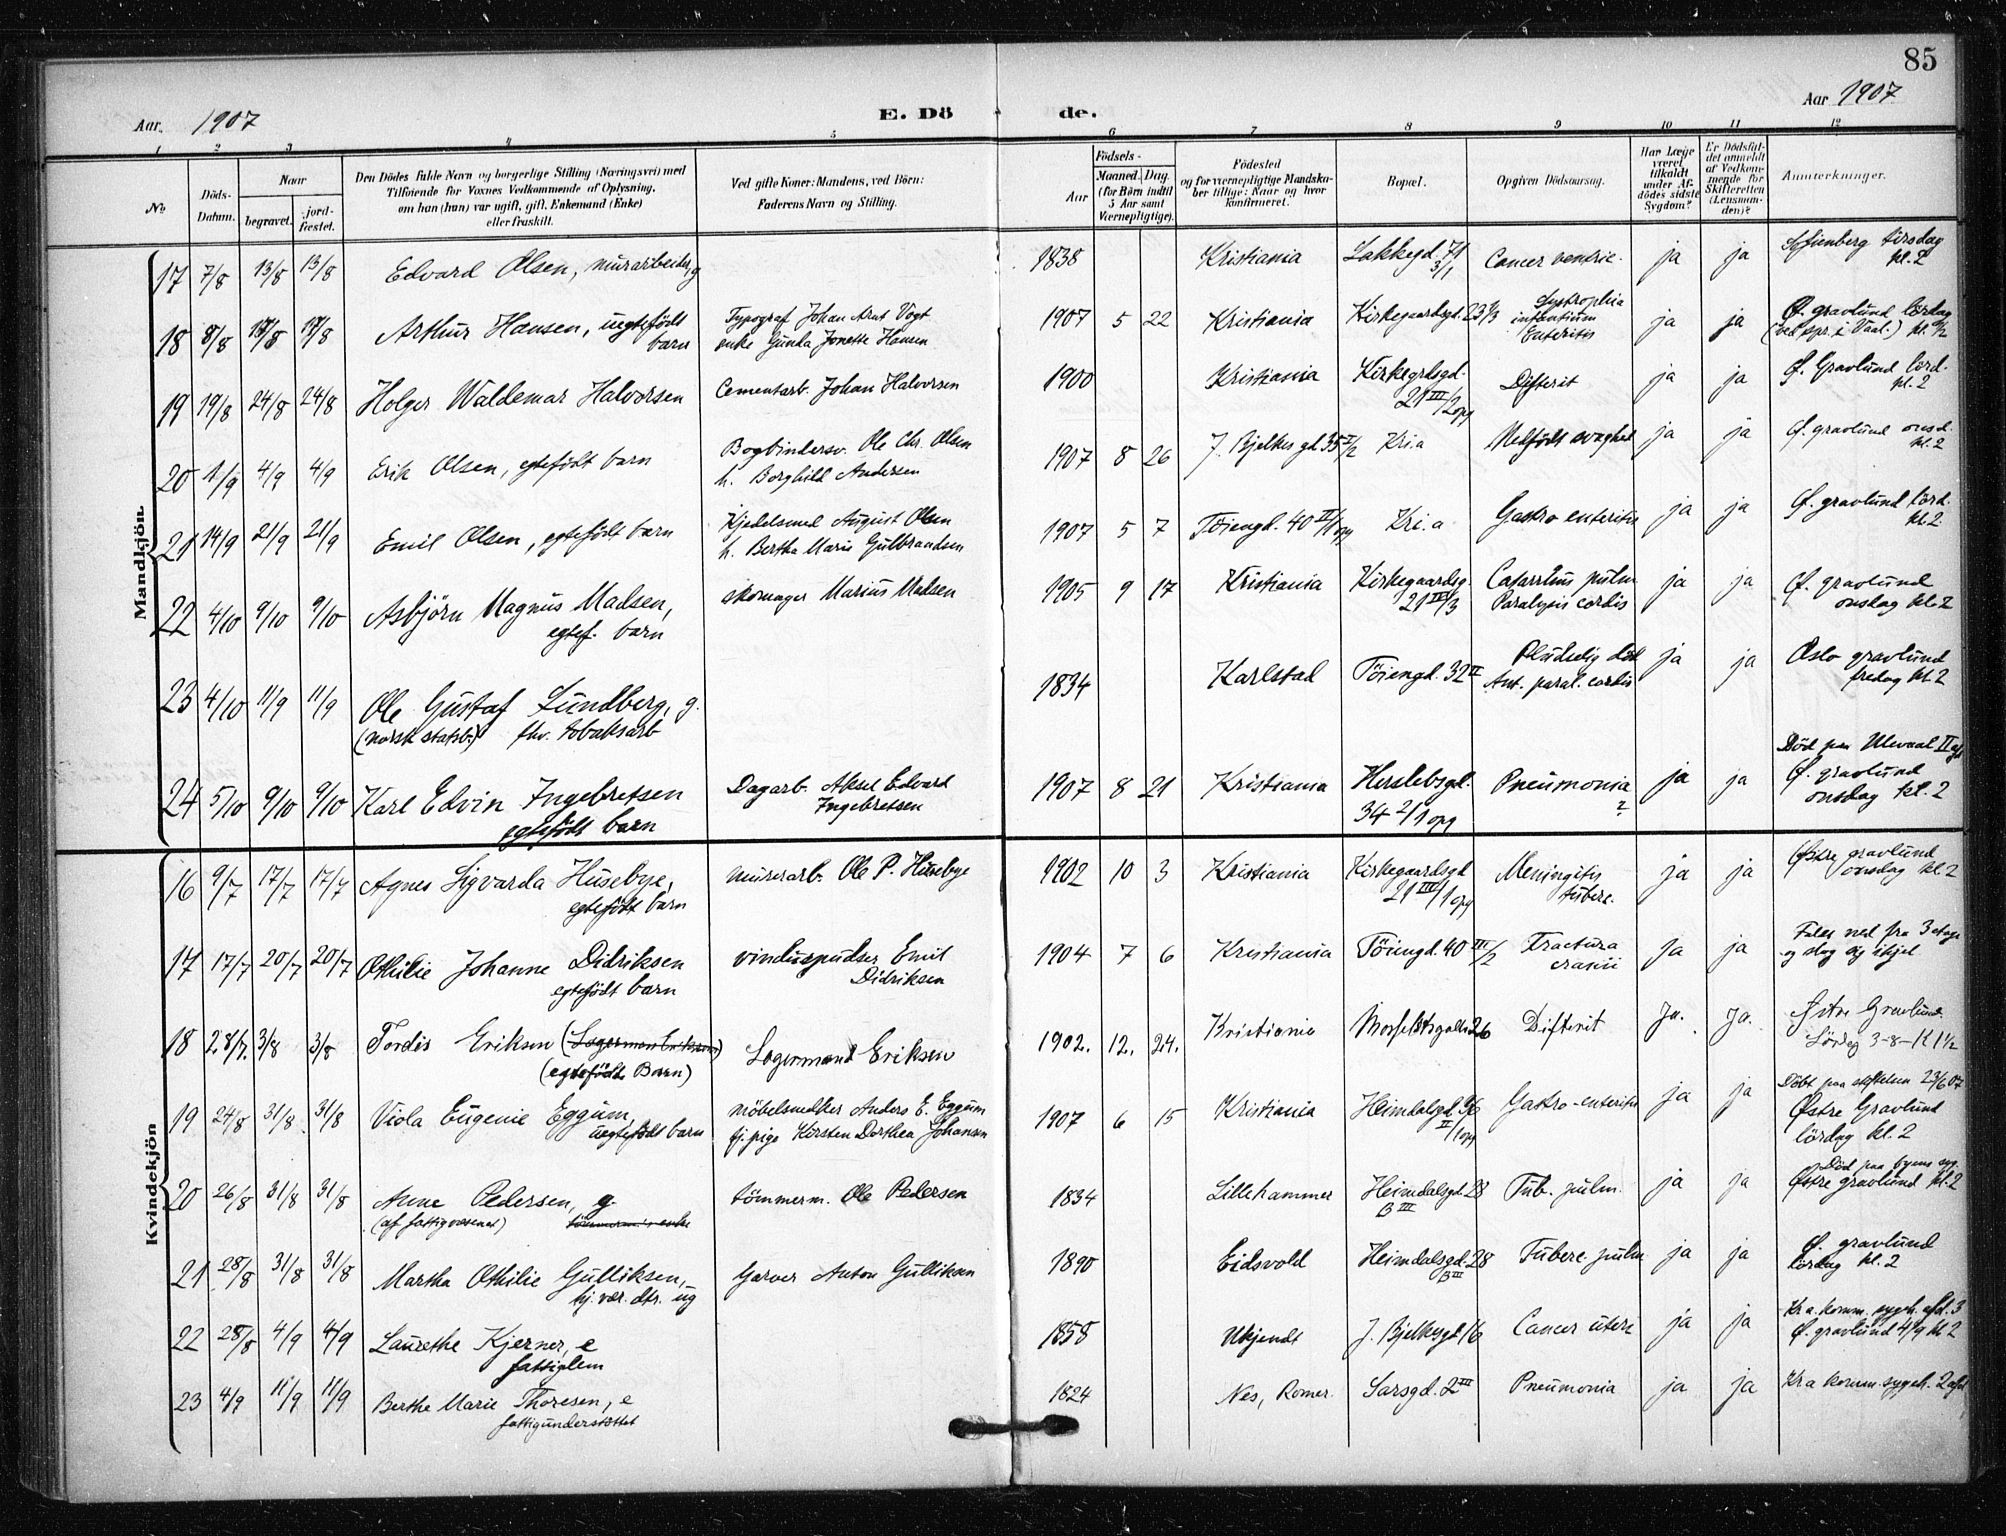 85
Aar. 1907
E. Dö
de.
Aar 1907
1 2 3 4 5 6 7 8 9 10 11 12
No
Döds-Datum.
Naar
begravet.
jord-fæstet.
Den Dödes fulde Navn og borgerlige Stilling (Næringsvei) med
Tilföiende for Voxnes Vedkommende af Oplysning,
om han (hun) var ugift, gift, Enkemand (Enke)
eller fraskilt.
Ved gifte Koner: Mandens, ved Börn:
Faderens Navn og Stilling.
Födsels-
Aar
Maaned. Dag.
(for Börn indtil
5 Aar samt
Værnepligtige).
Födested
og for værnepligtige Mandska-
ber tillige: Naar og hvor
konfirmeret.
Bopæl.
Opgiven Dödsaarsag.
Har Læge
været
tilkaldt
under Af-
dödes sidste
Sygdom?
Er Dödsfal-
det anmeldt
af Vedkom-
mende for
Skifteretten
(Lensman-
den)?
Anmærkninger.
Mandkjön.
17 7/8 13/8 13/8 Edvard Olsen, murarbeider, g 1838 Kristiania Lakkegd. 71 3/1 Cancer ventric. ja ja Sofienberg tirsdag
kl. 2
18 8/8 17/8 17/8 Arthur Hansen, uegtefödt
barn
Typograf Johan Arnt Vogt
enke Gunda Jonette Hansen
1907 5 22 Kristiania Kirkegaardsgt. 23 1/3
infantium
Enteritis
ja ja Ø. gravlund lördag
19 19/8 24/8 24/8 Holger Waldemar Halvorsen Cementarb. Johan Halvorsen 1900 Kristiania Kirkegrdsgd.
21 III/2 opg
Difterit ja ja Ø. Gravlund lörd.
kl. 2
20 1/9 4/9 4/9 Erik Olsen, egtefödt barn Bogbindersv. Ole Chr. Olsen
h. Borghild Andersen
1907 8 26 J. Bjelkes gd 35 I/2 Kr.i.a Medfödt svaghed ja ja Ø. gravlund onsd.
kl. 2
21 14/9 21/9 21/9 Emil Olsen, egtefödt barn Kjedelsmed August Olsen
h. Bertha Marie Gulbrandsen
1907 5 7 Töiengd. 40 II/1 opg Kr.i.a Gastro enteritis ja ja Ø. gravlund lörd.
kl. 2
22 4/10 9/10 9/10 Asbjörn Magnus Madsen,
egtef. barn
skomager Marius Madsen 1905 9 17 Kristiania Kirkegaardsg.
21 III/3
Catarrhus pulm
Paralysis cordis
ja ja Ø. gravlund
onsdag kl. 2
23 4/10 11/9 11/9 Ole Gustaf Lundberg, g.
(norsk statsb.) fhv. tobaksarb
1834 Karlstad Töiengd. 32 II Pludselig död
Ant. paral. cordis
ja ja Oslo gravlund
fredag kl. 2
24 5/10 9/10 9/10 Karl Edvin Ingebretsen
egtefödt barn
Dagarb. Aksel Edvard
Ingebretsen
1907 8 21 Kristiania Herslebsgd.
34 2/1 opg
Pneumonia
?
ja ja Död paa Ulevaal II afd
Ø. gravlund
onsdag kl. 2
Kvindekjön
16 9/7 17/7 17/7 Agnes Sigvarda Husebye,
egtefödt barn
murerarb. Ole P. Husebye 1902 10 3 Kristiania Kirkegaardsgd
21 III/1 opg
Meningitis
tuberc.
ja ja Østre gravlund
onsdag kl 2
17 17/7 20/7 20/7 Othilie Johanne Didriksen
egtefödt barn
vinduspudser Emil
Didriksen
1904 7 6 Kristiania Töiengd. 40 III/2 Fractura
cranii
ja ja Falt ned fra 3 etage
og slog sig ihjel
18 28/7. 3/8 3/8 Tordis Eriksen (Lagermand Eriksen)
(egtefödt Barn)
Lagermand Eriksen 1902. 12. 24. Kristiania 26 Difterit Ja. Ja. Østre Gravlund
Lördag 3-8-Kl 1 1/2
19 24/8 31/8 31/8 Viola Eugenie Eggum,
uegtefödt barn
möbelsnedker Anders E. Eggum
tj. pige Kirsten Dorthea Johansen
1907 6 15 Kristiania Heimdalsgd
II/1 opg
Gastro-enteritis ja ja Döbt paa stiftelsen 23/6 07
Østre Gravlund
lördag kl. 2
20 26/8 31/8 31/8 Anne Pedersen, g.
(af fattigvæsenet) tömmerm.'s enke
tömmerm. Ole Pedersen 1834 Lillehammer Heimdalsgd 28
B III
Tub. pulm. ja ja Död paa byens syg.
Østre gravlund kl. 2
21 28/8 31/8 31/8 Martha Othilie Gulliksen,
hj. vær. dtr. ug
Garver Anton Gulliksen 1890 Eidsvold Heimdalsgd. 28
B III
Tuberc. pulm ja ja Ø. gravlund
lördag kl. 2
22 28/8 4/9 4/9 Laurethe Kjerner, e
fattiglem
1858 Ukjendt J. Bjelkesgd 16 Cancer uteri ja ja Kr.a. komm. sygeh. afd. 3
Ø. gravlund 4/9 kl 2
23 4/9 11/9 11/9 Berthe Marie Thoresen, e
fattigunderstöttet
1824 Nes, Romer. Sarsgd. 2 III Pneumonia ja ja Kr.a komm. sygeh. 2 afd